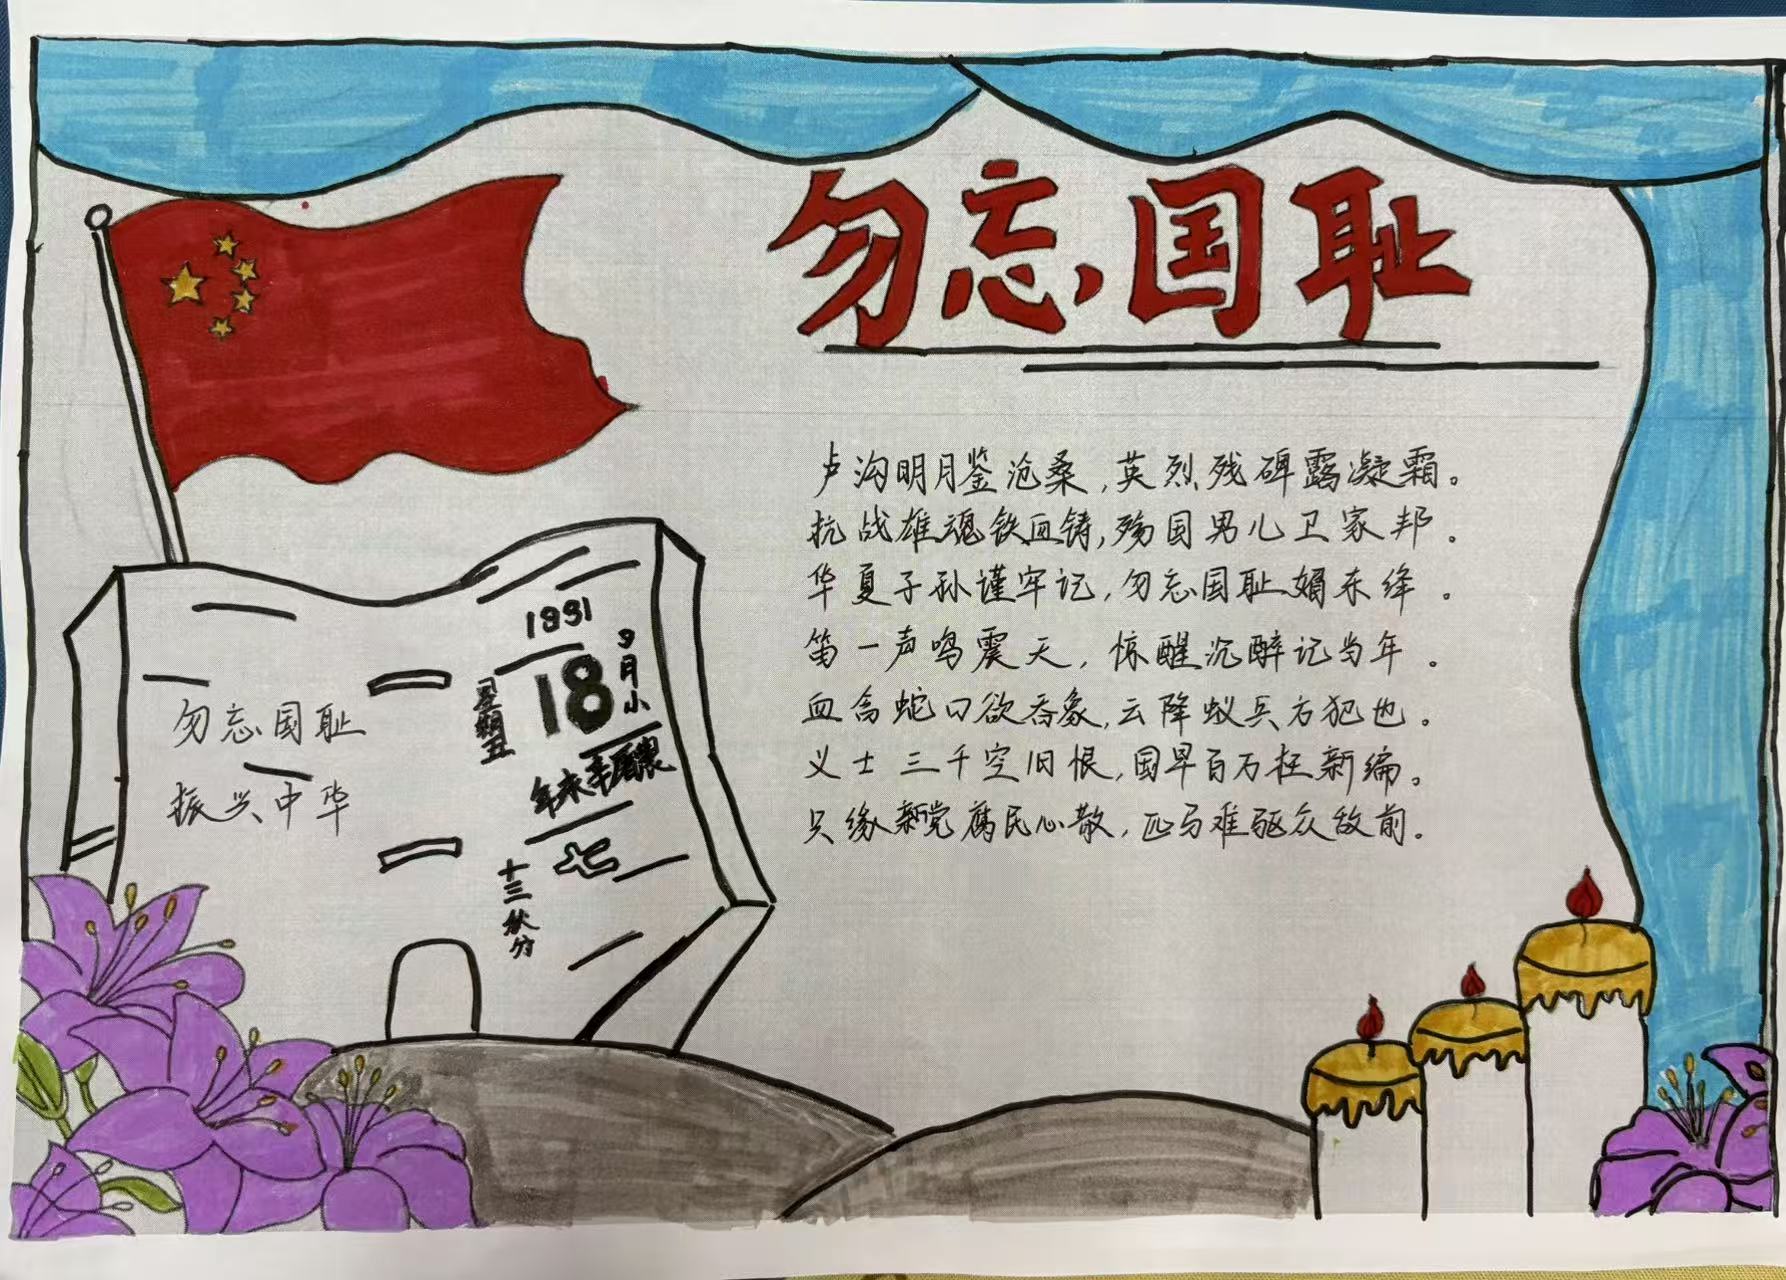 勿忘国耻
卢沟明月鉴沧桑,英烈残碑露凝霜。
抗战雄魂铁血铸,殇国男儿卫家邦。
华夏子孙谨牢记,勿忘国耻媚东绛。
笛一声鸣震天,惊醒沉醉记当年。
血禽蛇口欲吞象,云降蚁兵方犯也。
义士三千空旧恨,国旱百万枉新编。
只缘新党腐民心散,匹马难驱众敌前。
勿忘国耻
振兴中华
1931
9月小
18
星期五
年未辛
七
十三秋分